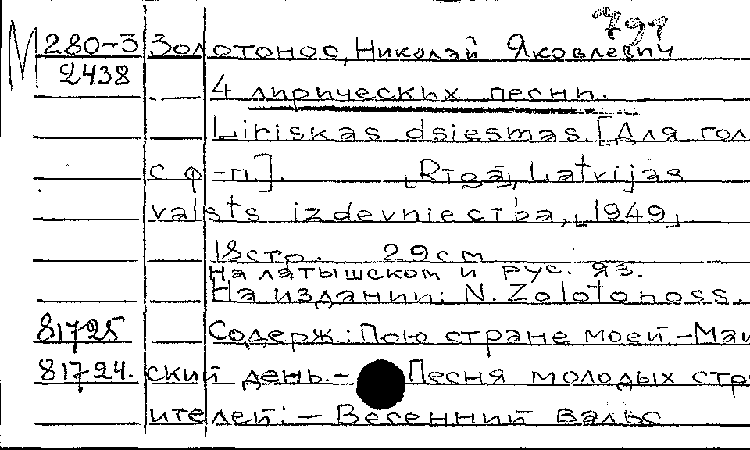 791
М 280-3 Золотонос, Николай Яковлевич
2438
4 лирических песни.
Liriskas dsiesmas. [Для гол
с ф-п.]. [Rīgā], Latvijas
valsts izdevniecība, [1949]
18 стр. 29 cm
На латышском и рус. яз.
На издании: N. Zolotonoss.
81725 Содерж: Пою стране моей. - Май
81724. ский день. - Песня молодых стро
ителей. - Весенний вальс